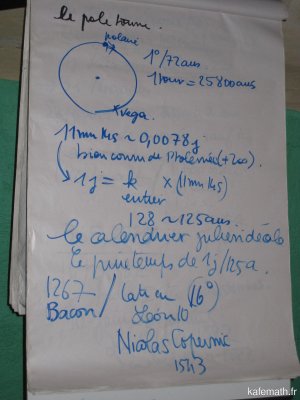 le pole tourne.
polaire
1°/72 ans
1 tour = 25800 ans
vega.
11mn 14s ~ 0,0078 j
bien connu de Ptolémée (+200).
1 j = k × (11mn 14s)
entier
128 ~ 125 ans
le calendrier julien décale
le printemps de 1j/125 a.
1267 / Latran (16°)
Bacon / Léon 10
Nicolas Copernic
1543
kafemath.fr